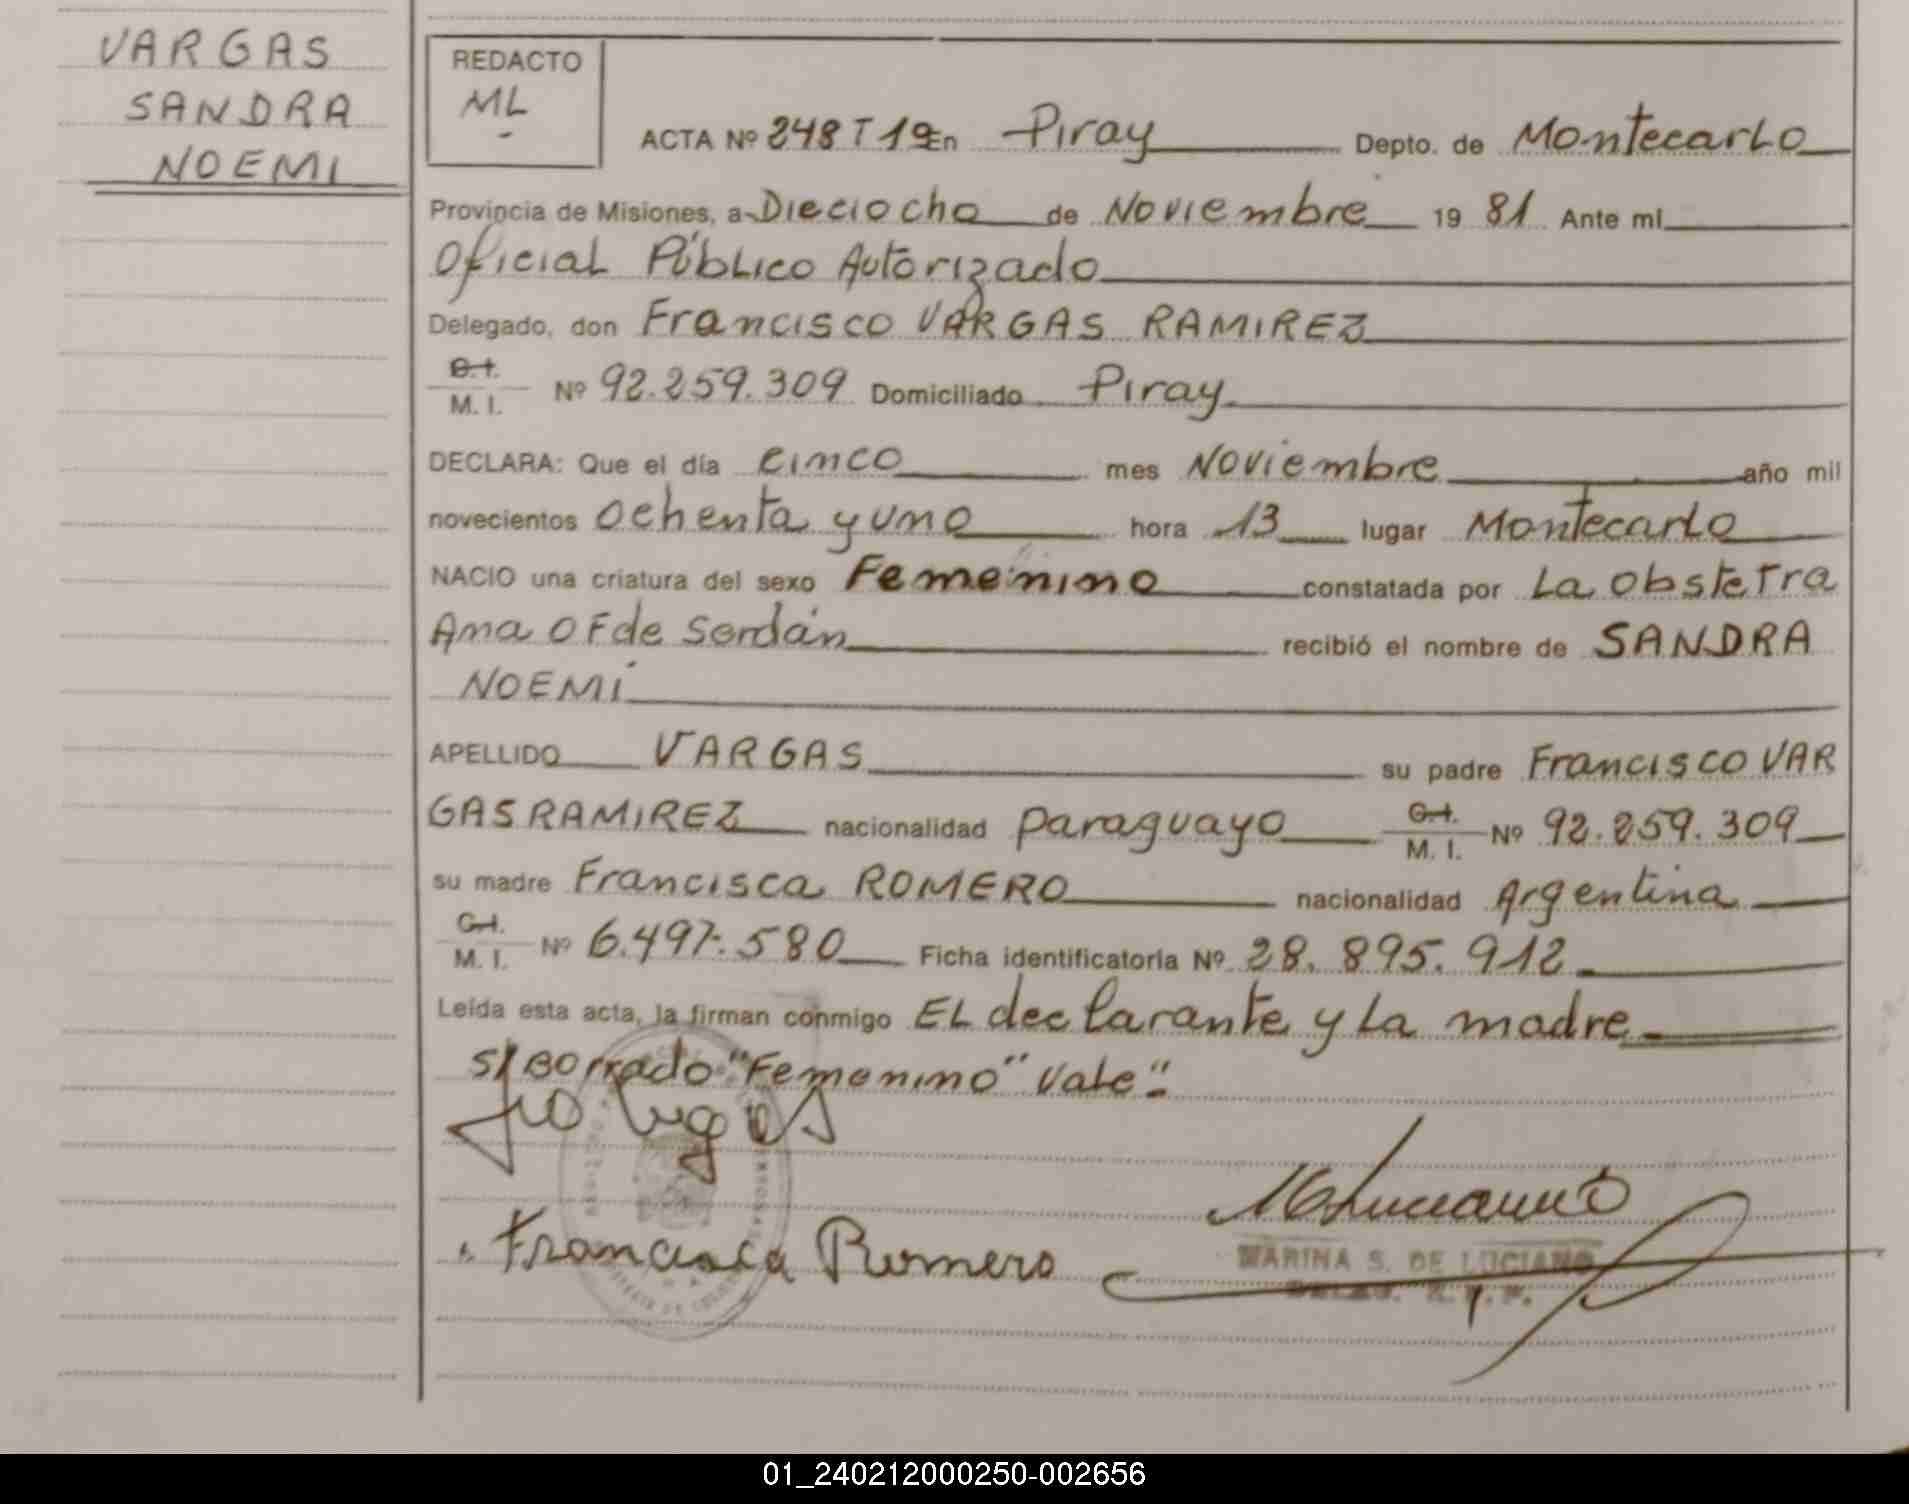 VARGAS
SANDRA
NOEMI
REDACTO
ML
ACTA Nº 248 T 19 En Piray Depto. de Montecarlo
Provincia de Misiones, a Dieciocho de Noviembre 19 81 Ante mí
Oficial Público Autorizado
Delegado, don Francisco VARGAS RAMIREZ
C.I.
M. I. Nº 92.259.309 Domiciliado Piray
DECLARA: Que el día cinco mes Noviembre año mil
novecientos ochenta y uno hora 13 lugar Montecarlo
NACIO una criatura del sexo Femenino constatada por La Obstetra
Ana O F de Serdán recibió el nombre de SANDRA
NOEMí
APELLIDO VARGAS su padre Francisco VAR
GAS RAMIREZ nacionalidad paraguayo C.I. M. I. Nº 92.259.309
su madre Francisca ROMERO nacionalidad Argentina
C.I.
M. I. Nº 6.497.580 Ficha identificatoria Nº 28.895.912
Leída esta acta, la firman conmigo EL declarante y La madre
S/Borrado "Femenino" Vale"
Francisca Romero
MARINA S. DE LUCIANO